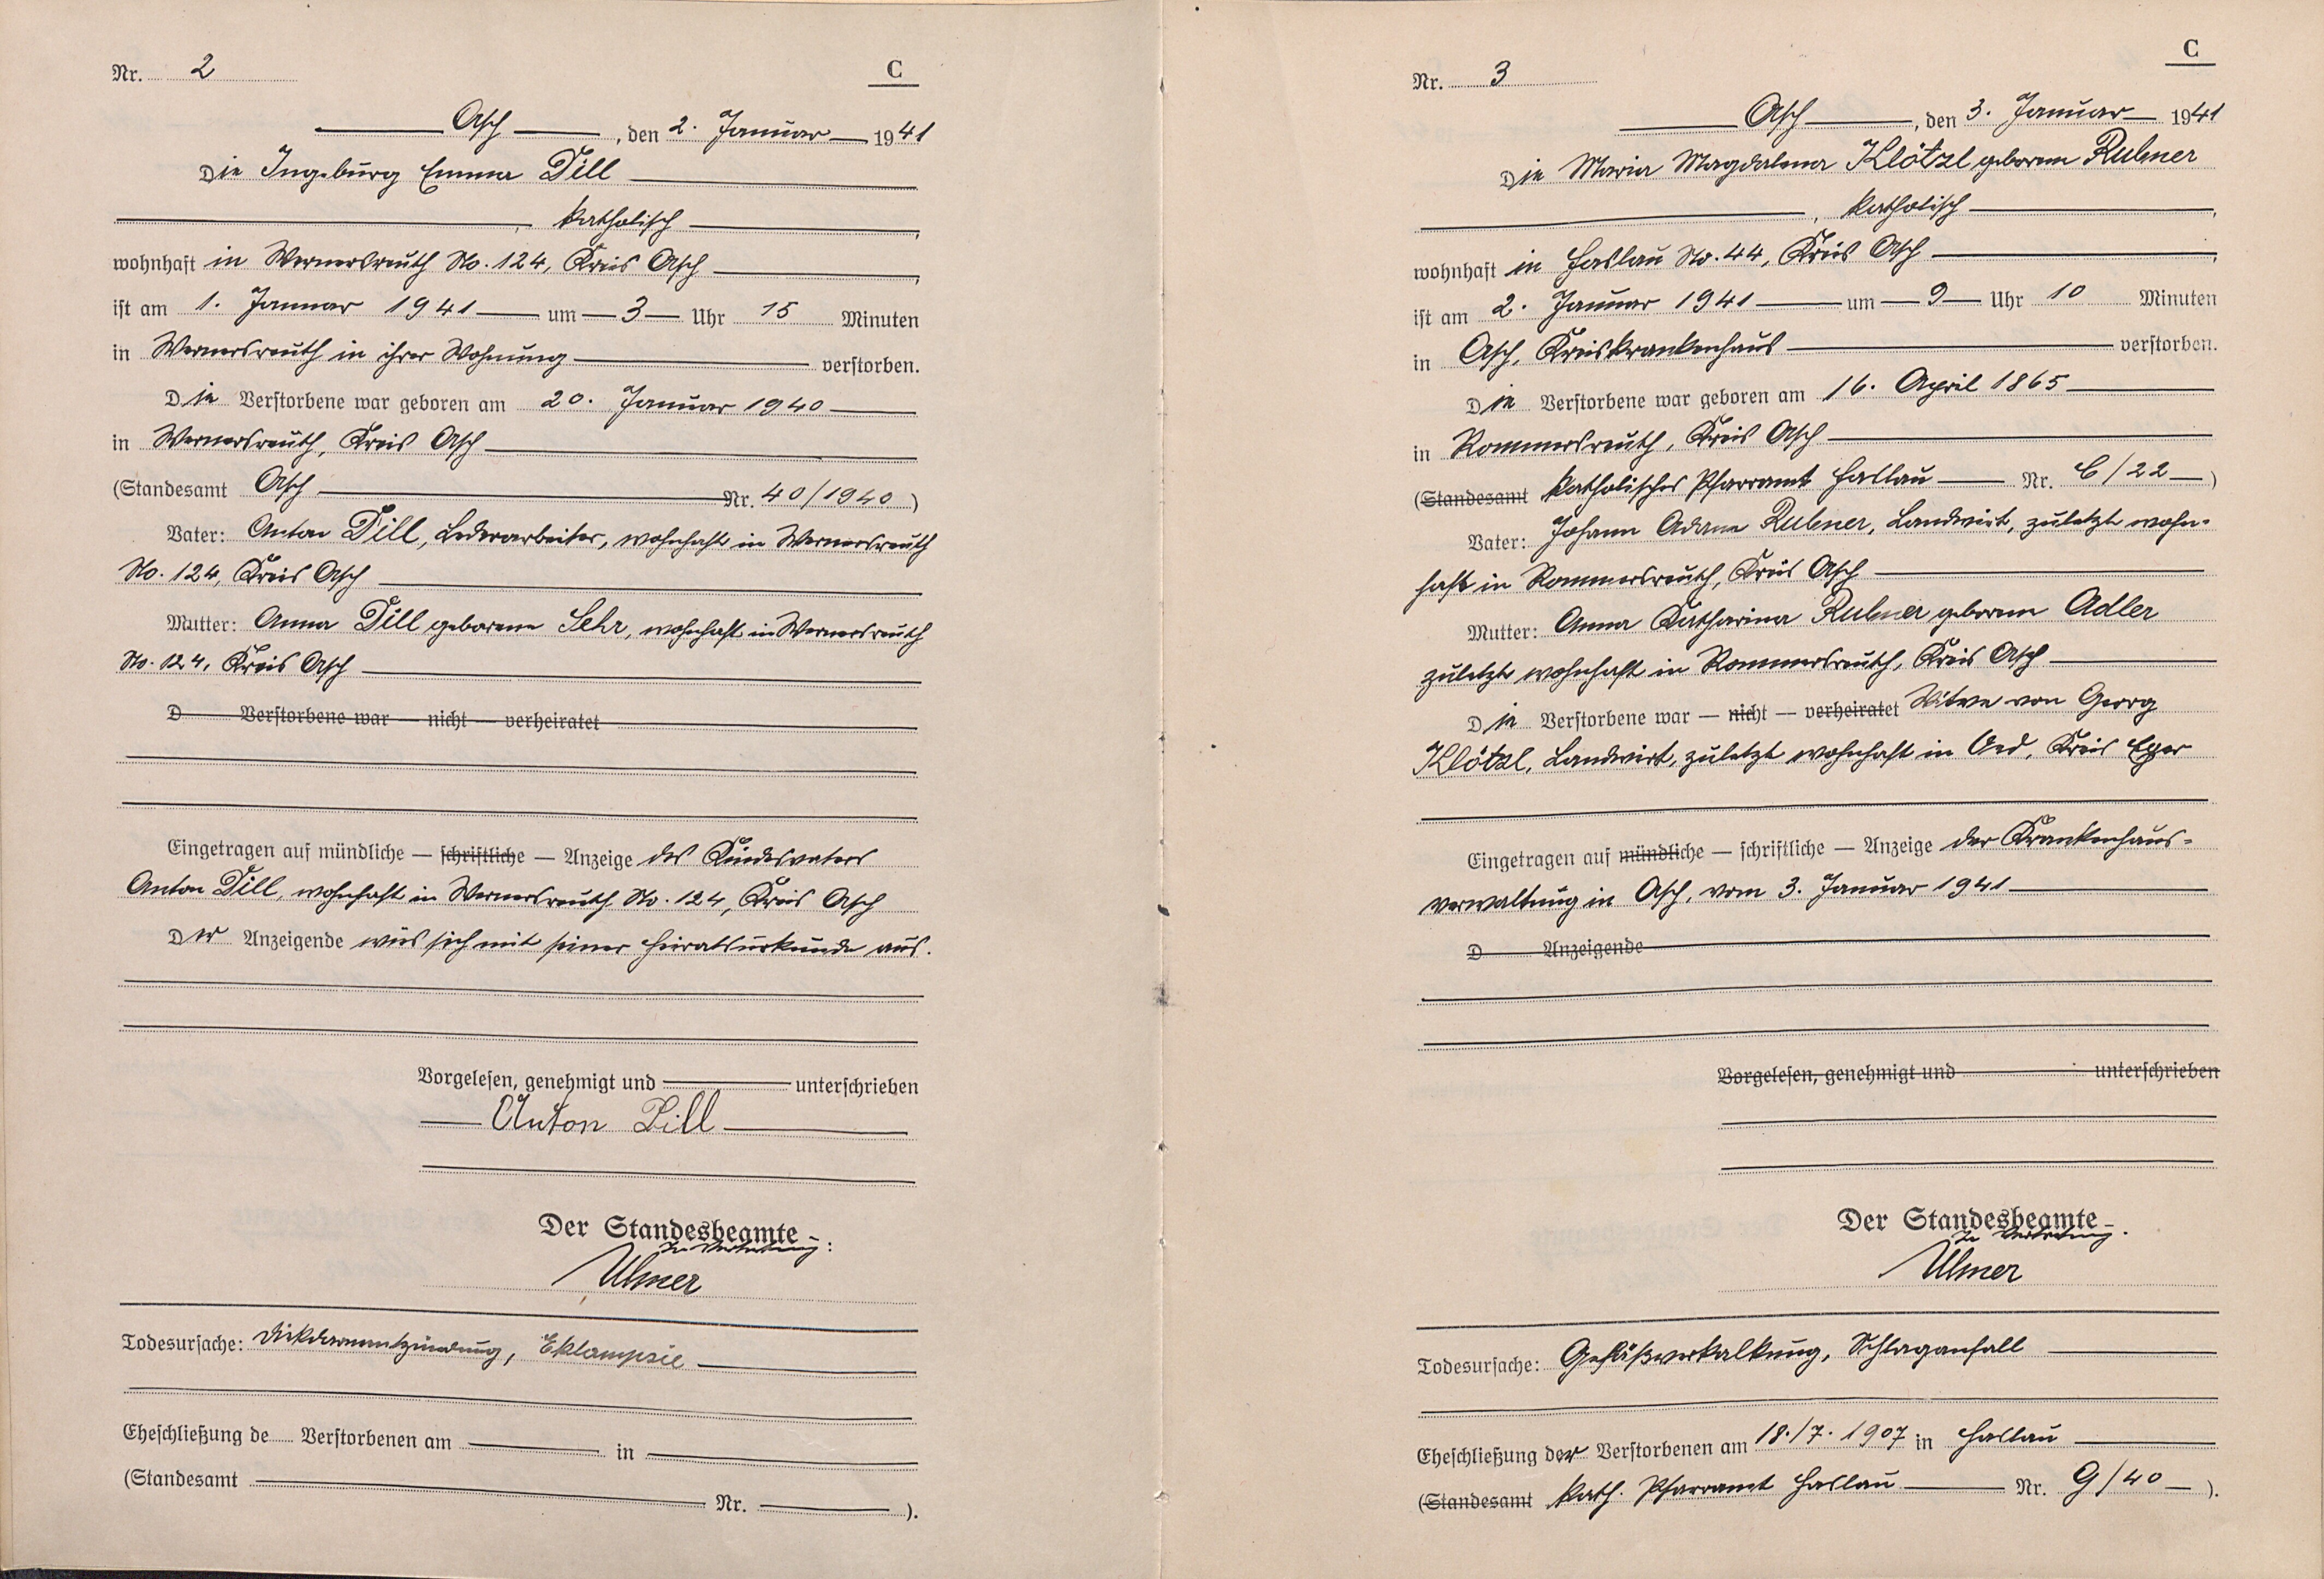 Nr. 2
C
Asch, den 2. Januar 1941
Die Ingeburg Emma Dill
, katholisch,
wohnhaft in Wernersreuth No. 124, Kreis Asch,
ist am 1. Januar 1941 um 3 Uhr 15 Minuten
in Wernersreuth in ihrer Wohnung verstorben.
Die Verstorbene war geboren am 20. Januar 1940
in Wernersreuth, Kreis Asch
(Standesamt Asch Nr. 40/1940)
Vater: Anton Dill, Lederarbeiter, wohnhaft in Wernersreuth
No. 124, Kreis Asch
Mutter: Anna Dill geborene Sehr, wohnhaft in Wernersreuth
No. 124, Kreis Asch
D Verstorbene war — nicht — verheiratet
Eingetragen auf mündliche — schriftliche — Anzeige des Kindesvaters
Anton Dill, wohnhaft in Wernersreuth No. 124, Kreis Asch
Der Anzeigende wies sich mit seiner Heiratsurkunde aus.
Vorgelesen, genehmigt und unterschrieben
Anton Dill
Der Standesbeamte
In Vertretung:
Ulmer
Todesursache: Dickdarmentzündung, Eklampsie
Eheschließung de Verstorbenen am in
(Standesamt Nr. ).
C
Nr. 3
Asch, den 3. Januar 1941
Die Maria Magdalena Klötzl geborene Rubner
, katholisch,
wohnhaft in Haslau No. 44, Kreis Asch,
ist am 2. Januar 1941 um 9 Uhr 10 Minuten
in Asch, Kreiskrankenhaus verstorben.
Die Verstorbene war geboren am 16. April 1865
in Rommersreuth, Kreis Asch
(Standesamt Katholisches Pfarramt Haslau Nr. 6/22)
Vater: Johann Adam Rubner, Landwirt, zuletzt wohn-
haft in Rommersreuth, Kreis Asch
Mutter: Anna Katharina Rubner geborene Adler
zuletzt wohnhaft in Rommersreuth, Kreis Asch
Die Verstorbene war — nicht — verheiratet Witwe von Georg
Klötzl, Landwirt, zuletzt wohnhaft in Oed, Kreis Eger
Eingetragen auf mündliche — schriftliche — Anzeige der Krankenhaus-
verwaltung in Asch, vom 3. Januar 1941
D Anzeigende
Vorgelesen, genehmigt und unterschrieben
Der Standesbeamte
In Vertretung.
Ulmer
Todesursache: Gefäßverkalkung, Schlaganfall
Eheschließung der Verstorbenen am 18./7. 1907 in Haslau
(Standesamt Kath. Pfarramt Haslau Nr. 9/40 ).